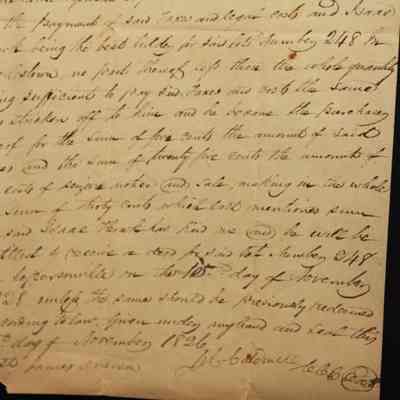 the payment of said Taxes and legal costs and Isaac
being the best bidder for said lot Number 248 in
no part thereof less than the whole quantity
ing sufficient to pay said Taxes and costs the same
stricken off to him and he became the purchaser
of for the sum of five cents the amount of said
and the sum of twenty five cents the amount of
costs of notice and Sale, making in the whole
sum of thirty cents which last mentioned sum
said Isaac has paid me and he will be
to receive a deed for said lot Number 248
Jeffersonville on the day of November
28 unless the same should be previously redeemed
ording to law Given under my hand and Seal this
day of November 1826
James